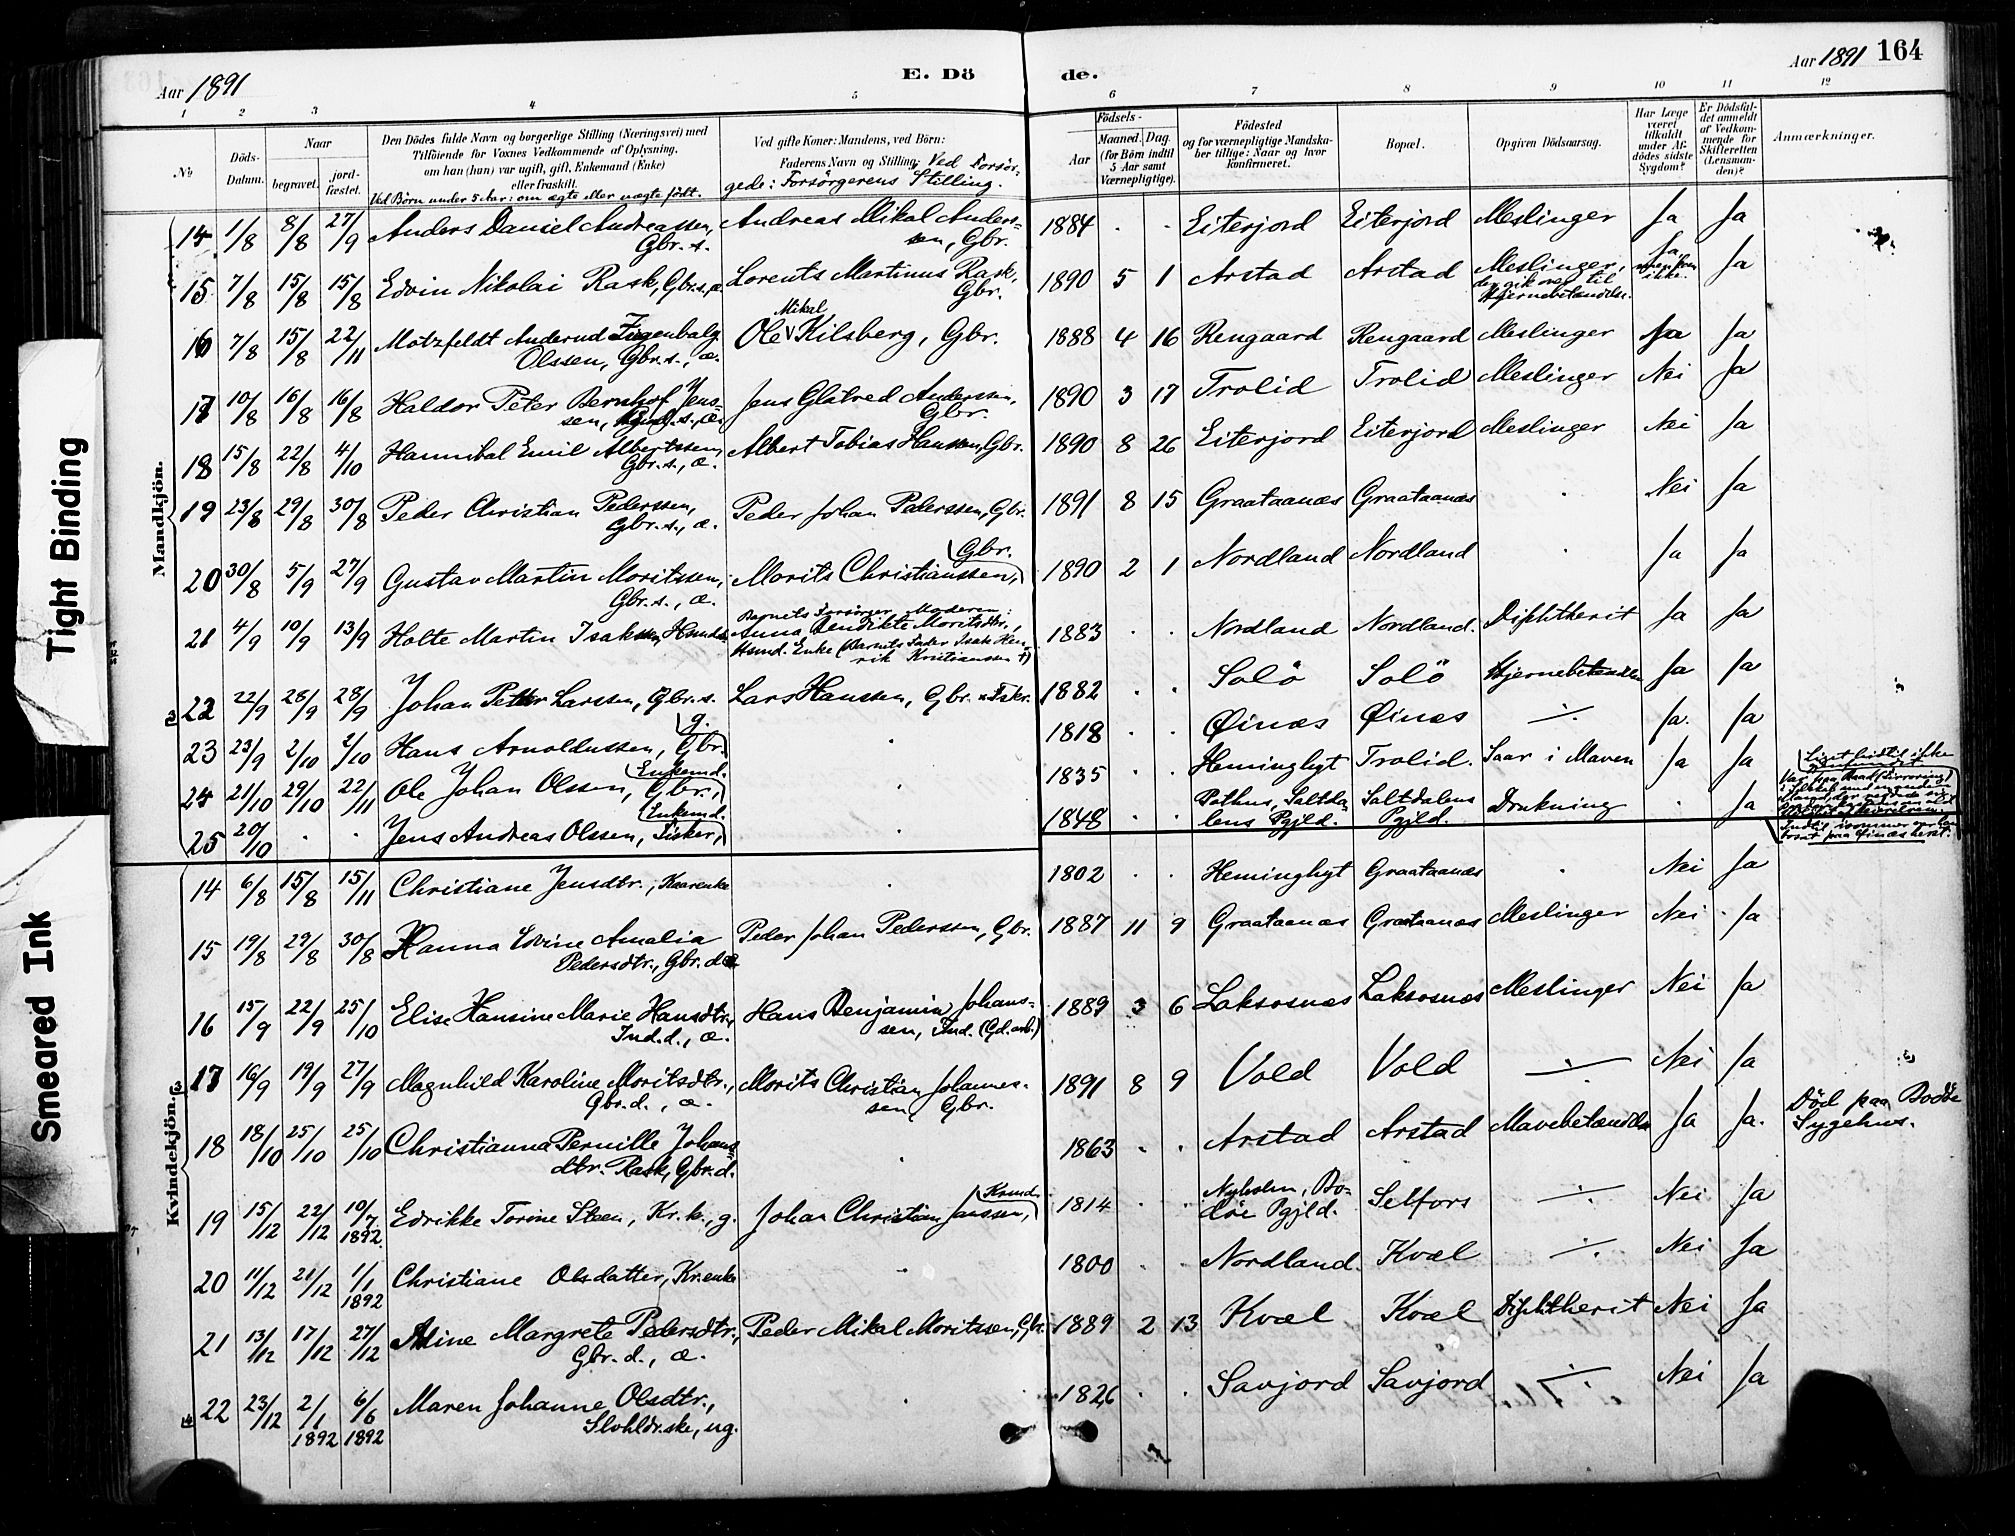 Aar 1891
E. Dö
de.
Aar 1891 164
1 2 3 4 5 6 7 8 9 10 11 12
No
Döds-Datum.
Naar
begravet.
jord-fæstet.
Den Dödes fulde Navn og borgerlige Stilling (Næringsvei) med
Tilföiende for Voxnes Vedkommende af Oplysning,
om han (hun) var ugift, gift, Enkemand (Enke)
eller fraskilt.
Ved Börn under 5 Aar: om ægte eller uægte född.
Ved gifte Koner: Mandens, ved Börn:
Faderens Navn og Stilling. Ved Forsör-
gede: Forsörgerens Stilling.
Födsels-
Aar
Maaned. Dag.
(for Börn indtil
5 Aar samt
Værnepligtige).
Födested
og for værnepligtige Mandska-
ber tillige: Naar og hvor
konfirmeret.
Bopæl.
Opgiven Dödsaarsag.
Har Læge
været
tilkaldt
under Af-
dödes sidste
Sygdom?
Er Dödsfal-
det anmeldt
af Vedkom-
mende for
Skifteretten
(Lensman-
den)?
Anmærkninger.
Mandkjön.
14 1/8 8/8 27/9 Anders Daniel Andreassen, Gbr. s. Andreas Mikal Anders-sen, Gbr. 1884 . . Eiterjord Eiterjord Meslinger Ja Ja
15 7/8 15/8 15/8 Edvin Nikolai Rask, Gbr. s., æ. Lorents Martinus Rask, Gbr. 1890 5 1 Arstad Arstad Meslinger, der gik over til Hjernebetændelse. Ja, ikke. Ja
16 7/8 15/8 22/11 Motzfeldt Anderud Ziegenbalg Olssen, Gbr. s., æ. Ole Mikal Kilsberg, Gbr. 1888 4 16 Rengaard Rengaard Meslinger Ja Ja
17 10/8 16/8 16/8 Haldor Peter Bernhof Jens-sen, s., æ. Jens Glatved Anderssen, Gbr. 1890 3 17 Trolid Trolid Meslinger Nei Ja
18 15/8 22/8 4/10 Hannibal Emil Albertssen, Gbr. s., æ. Albert Tobias Hanssen, Gbr. 1890 8 26 Eiterjord Eiterjord Meslinger Nei Ja
19 23/8 29/8 30/8 Peder Christian Pederssen, Gbr. s., æ. Peder Johan Pederssen, Gbr. 1891 8 15 Graataanæs Graataanæs . Nei Ja
20 30/8 5/9 27/9 Gustav Martin Moritssen, Gbr. s., æ. Morits Christianssen, Gbr. 1890 2 1 Nordland Nordland . Ja Ja
21 4/9 10/9 13/9 Holte Martin Isakssen, Barnets Forsörger, Moderen: Anna Bendikte Moritsdtr., Hsmd. Enke (Barnets Fader Isak Hen-rik Kristianssen †) 1883 . . Nordland Nordland. Diphtherit Ja Ja
22 22/9 28/9 28/9 Johan Petter Larssen, Gbr. s. Lars Hanssen, Gbr. Fskr. 1882 . . Solö Solö Hjernebetændelse Ja Ja
23 23/9 2/10 2/10 Hans Arnoldussen, g. Gbr. . 1818 . . Øinæs Øinæs -/. Ja. Ja
24 21/10 29/10 22/11 Ole Johan Olssen, Enkemd. Gbr., . 1835 . . Heminghyt Trolid. Saar i Maven Ja Ja
25 20/10 . . Jens Andreas Olssen, Enkemd. Fisker, . 1848 Pothus, Saltda-lens Pgjld. Saltdalens Pgjld. Drukning . Ja
Kvindekjön.
14 6/8 15/8 15/11 Christiane Jensdtr., Kaarenke . 1802 . . Heminghyt Graataanæs . Nei Ja
15 19/8 29/8 30/8 Hanna Edvine Amalia Pedersdtr., Gbr. d. æ. Peder Johan Pederssen, Gbr. 1887 11 9 Graataanæs Graataanæs Meslinger Nei Ja
16 15/9 22/9 25/10 Elise Hansine Marie Hansdtr., Ind. d., æ. Hans Benjamin Johans-sen, Ind. (Gd. arb.) 1889 3 6 Laksosnæs Laksosnæs Meslinger Nei Ja
17 16/9 19/9 27/9 Magnhild Karoline Moritsdtr., Gbr. d., æ. Morits Christian Johannes-sen, Gbr. 1891 8 9 Vold Vold -/. Nei Ja
18 18/10 25/10 25/10 Christianna Pernille Johans-dtr. Rask, Gbr. d. . 1863 . . Arstad Arstad Mavebetændelse Ja Ja. Död paa Bodö Sygehus.
19 15/12 22/12 10/7 1892 Edrikke Torine Steen, Kr. k., g. Johan Christian Janssen, Krmd. 1814 . . Nyholm, Bo-döe Pgjld. Selfors -/. Nei Ja
20 11/12 21/12 1/1 1892 Christiane Olsdatter, Kr. enke . 1800 . . Nordland. Kvæl -/. Nei Ja
21 13/12 17/12 27/12 Aline Margrete Pedersdtr., Gbr. d., æ. Peder Mikal Moritssen, Gbr. 1889 2 13 Kvæl Kvæl Diphtherit Nei Ja
22 23/12 2/1 1892 6/6 1892 Maren Johanne Olsdtr., ug. . 1826 . . Savjord Savjord -/. Nei Ja
Tight Binding
Smeared Ink